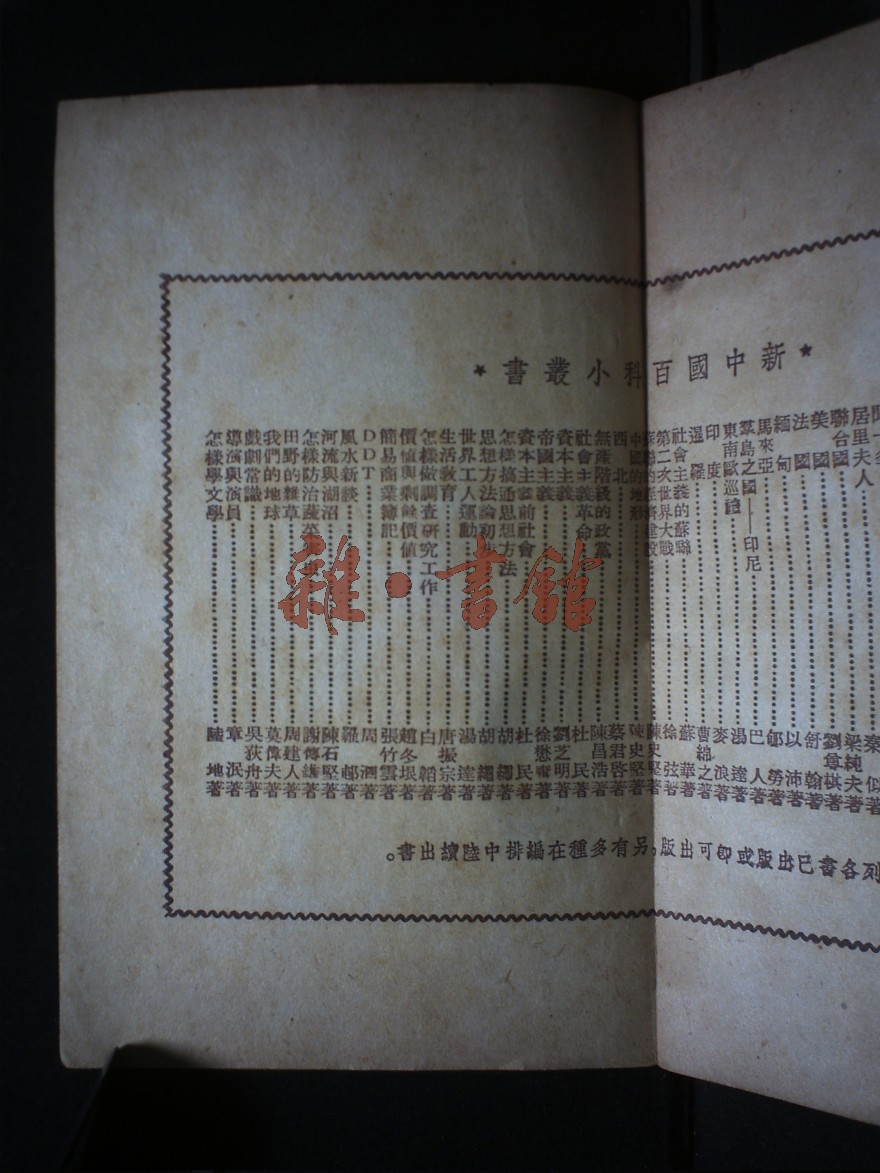 ★新中國百科小叢書★
居里夫人……秦似著
聯合國……梁純夫著
美國……劉尊棋著
法國……舒翰著
緬甸……以沛著
馬來亞……郇勞著
羣島之國——印尼……巴人著
東南歐巡禮……湯逵著
印度……麥浪著
暹羅……曹綿之著
社會主義的蘇聯……蘇華著
第二次世界大戰……徐弦著
蘇聯的經濟建設……陳史堅著
中國的地形……陳史堅著
西北……蔡君啓著
無產階級的政黨……陳昌浩著
社會主義革命……杜民著
資本主義……劉芝明著
帝國主義……徐懋庸著
資本主義前社會……杜民著
怎樣搞通思想方法……胡繩著
思想方法論初步……胡繩著
世界工人運動……湯逵著
生活教育……唐振宗著
怎樣做調查研究工作……白韜著
價值與剩餘價值……趙冬垠著
簡易商業簿記……張竹雲著
DDT……周泗著
風水新談……羅邨著
河流與湖沼……陳石堅著
怎樣防治蔬菜……著
田野的雜草……周建人著
我們的地球……莫偉夫著
戲劇常識……吳荻舟著
導演與演員……章泯著
怎樣學文學……陸地著
列各書已出版或即可出版。另有多種在編排中陸續出書。
雜·書館